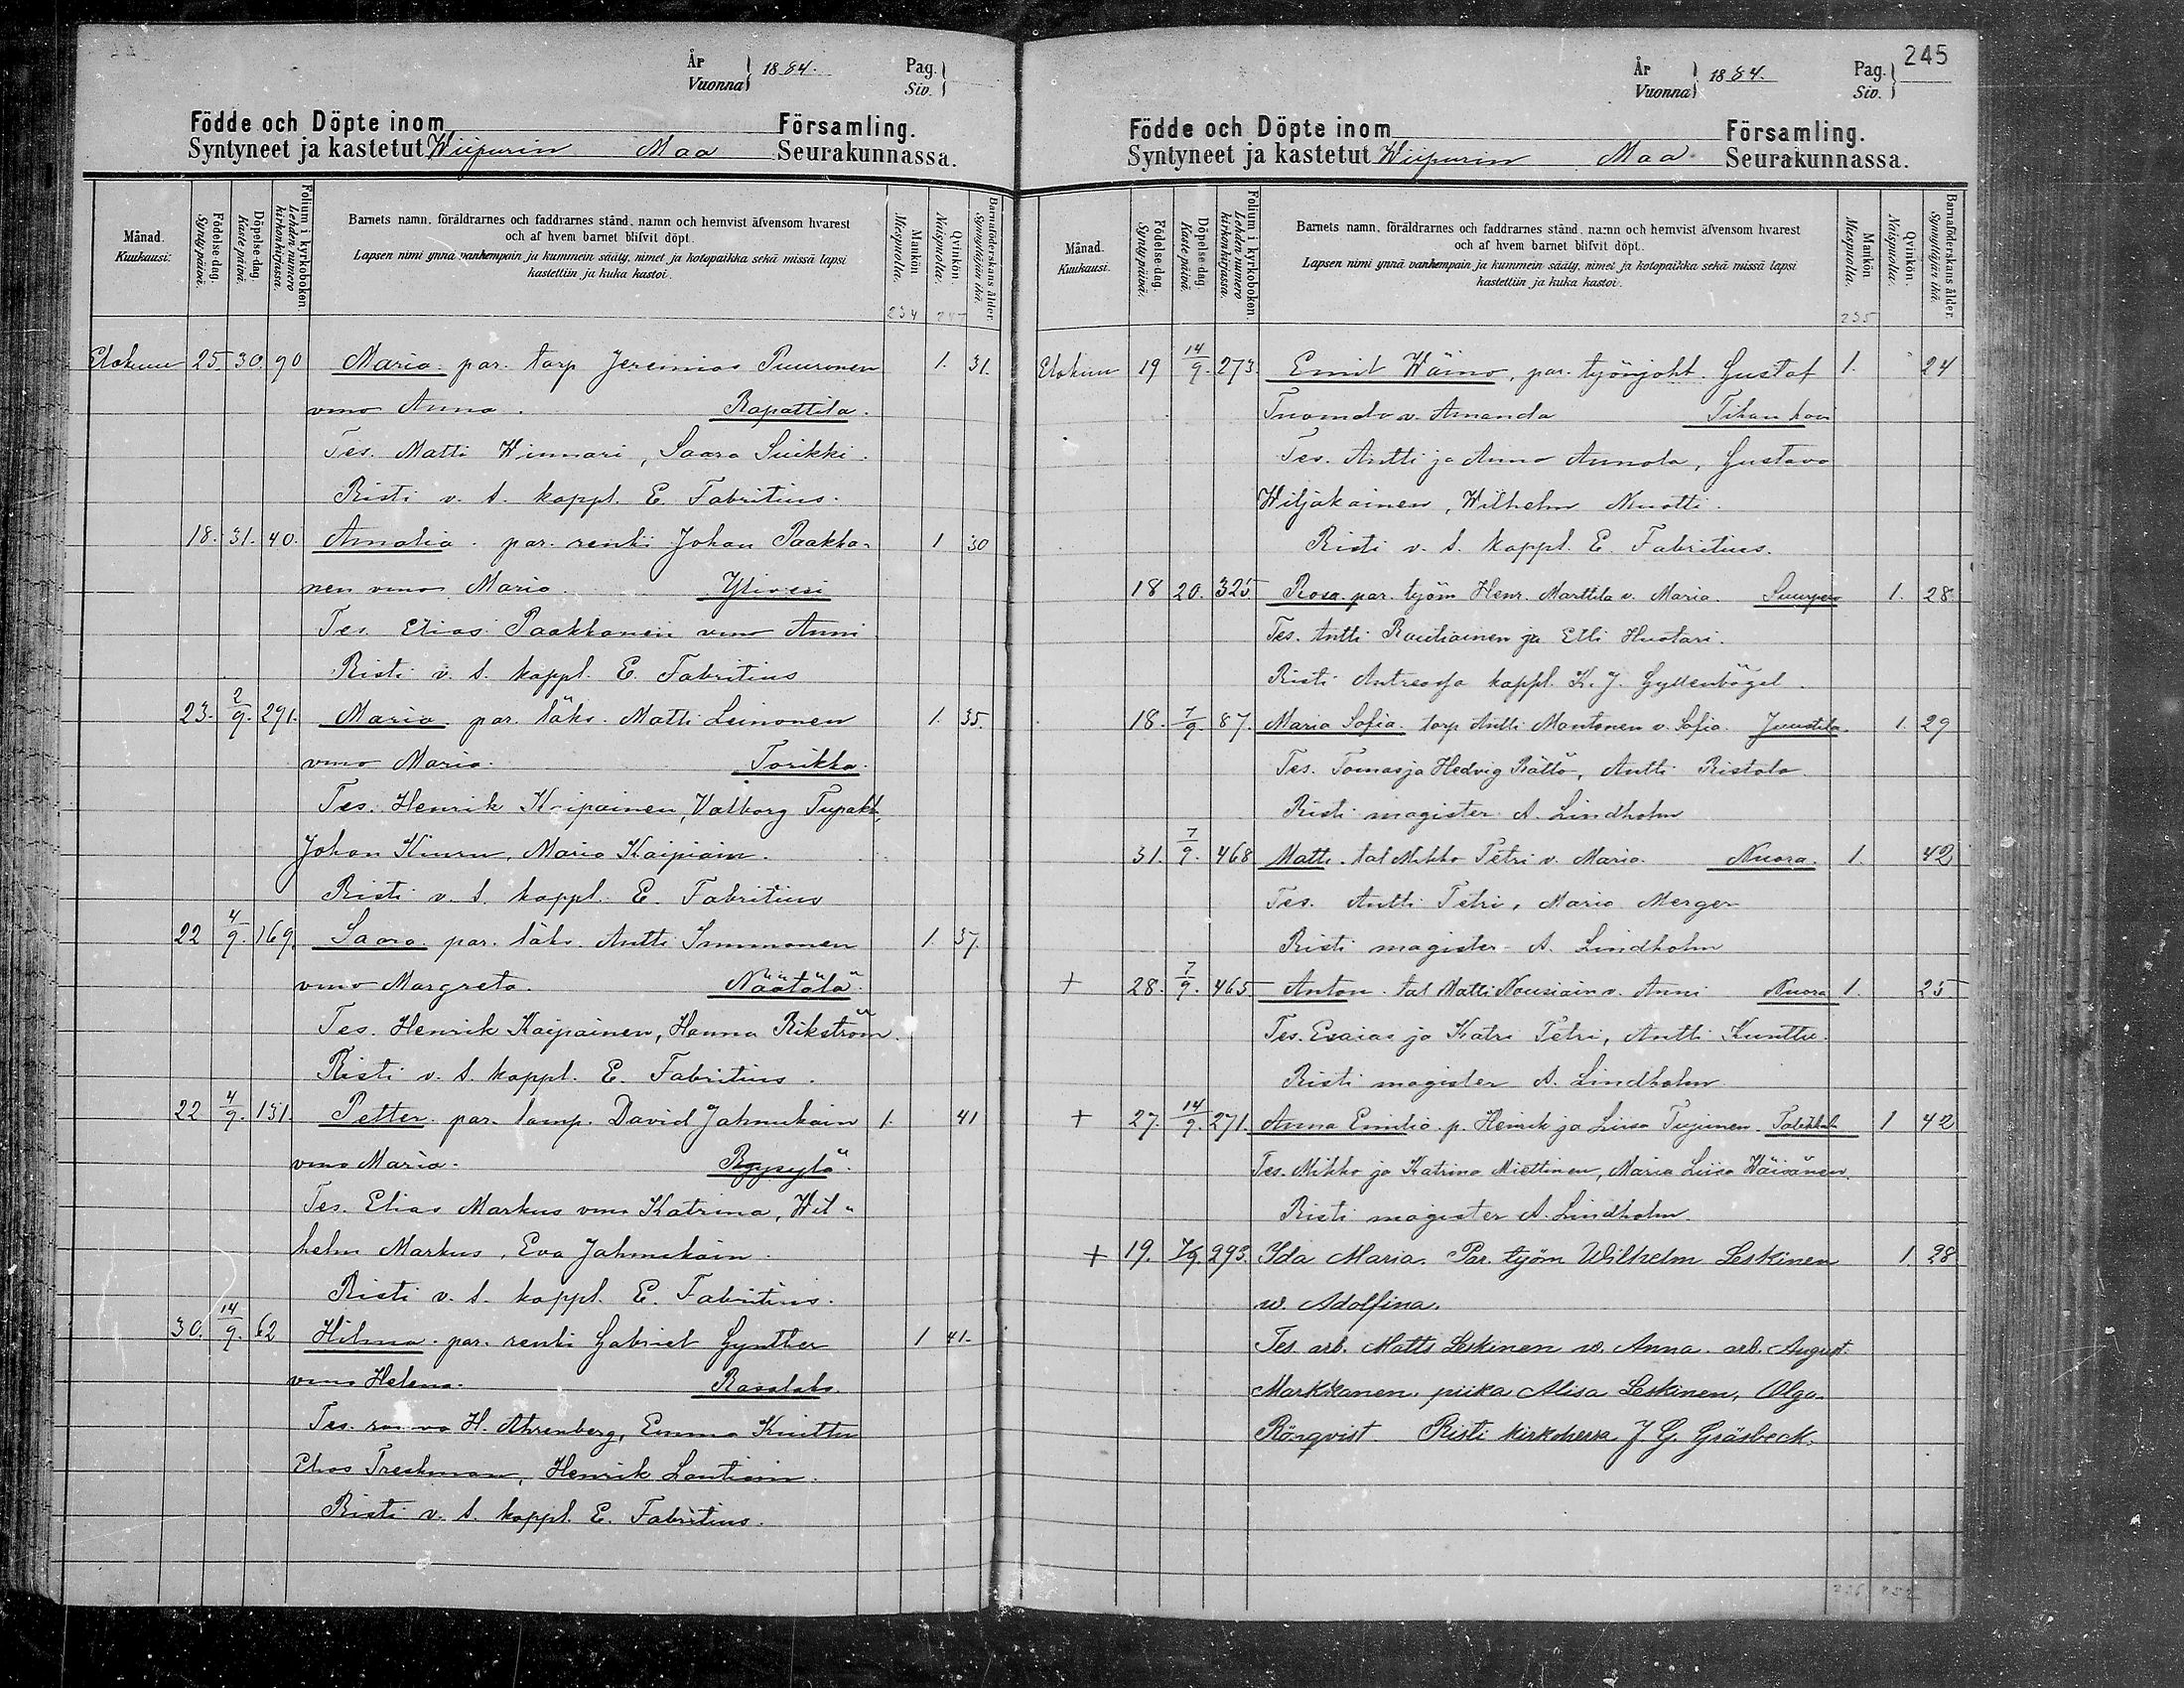 År
Vuonna 1884.
Pag.
Siv.
Födde och Döpte inom Församling.
Syntyneet ja kastetut Wiipurin Maa Seurakunnassa.
Månad. Kuukausi:
Födelse-dag. Synty-päivä.
Döpelse-dag. Kaste-päivä.
Folium i kyrkoboken. Lehden numero kirkonkirjassa.
Barnets namn, föräldrarnes och faddrarnes stånd, namn och hemvist äfvensom hvarest
och af hvem barnet blifvit döpt.
Lapsen nimi ynnä vanhempain ja kummein sääty, nimet ja kotopaikka sekä missä lapsi
kastettiin ja kuka kastoi.
Mankön. Miespuolta.
Qvinkön. Naispuolta.
Barnaföderskans ålder. Synnyttäjän ikä.
234 247
Elokuu 25. 30. 90 Maria. par. torp Jeremias Puuronen 1. 31.
vmo Anna. Rapattila.
Tes. Matti Winnari, Saara Suikki.
Risti v. s. kappl. E. Fabritius.
18. 31. 40. Amalia. par. renki Johan Paakko- 1 30
nen vmo Maria. Ylivesi
Tes. Elias Paakkonen vmo Anni
Risti v. s. kappl. E. Fabritius
23. 2/9. 291. Maria. par. läks. Matti Leinonen 1. 35.
vmo Maria. Torikka.
Tes. Henrik Kaipainen, Valborg Tupakk,
Johan Kiuru, Maria Kaipiain.
Risti v. s. kappl. E. Fabritius
22 4/9. 169. Saara. par. läks. Antti Immonen 1. 37.
vmo Margreta. Näätälä.
Tes. Henrik Kaipainen, Hanna Rikström.
Risti v. s. kappl. E. Fabritius.
22 4/9. 131. Petter. par. lamp. David Jahnukain 1. 41
vmo Maria.
Tes. Elias Markus vmo Katrina, Wil-
helm Markus, Eva Jahnukain.
Risti v. s. kappl. E. Fabritius.
30. 14/9. 62 Hilma. par. renki Gabriel Gynther 1 41.
vmo Helena.
Tes. H. Ahrenberg, Emma Knittu
Elias Treskman, Henrik Lautiain.
Risti v. s. kappl. E. Fabritius.
245
År
Vuonna 1884.
Pag.
Siv.
Födde och Döpte inom Församling.
Syntyneet ja kastetut Wiipurin Maa Seurakunnassa.
Månad. Kuukausi.
Födelse-dag. Synty-päivä.
Döpelse-dag. Kaste-päivä.
Folium i kyrkoboken. Lehden numero kirkonkirjassa.
Barnets namn, föräldrarnes och faddrarnes stånd, namn och hemvist äfvensom hvarest
och af hvem barnet blifvit döpt.
Lapsen nimi ynnä vanhempain ja kummein sääty, nimet ja kotopaikka sekä missä lapsi
kastettiin ja kuka kastoi.
Mankön Miespuolta.
Qvinkön. Naispuolta.
Barnaföderskans ålder. Synnyttäjän ikä.
235
Elokuu 19 14/9. 273. Emil Wäino, par. työnjoht. Gustaf 1. 24
v. Amanda
Tes. Antti ja Anna Annola, Gustava
Wiljakainen, Wilhelm Nuotti.
Risti v. s. kappl. E. Fabritius.
18 20. 325 Rosa. par. työm Henr. Marttila v. Maria. 1. 28
Tes. Antti Rautiainen ja Elli Huotari.
Risti Antrea kappl. K. J. Gyllenbögel.
18. 7/9. 87. Maria Sofia. torp Antti Mantonen v. Sofia. Juustila. 1. 29
Tes. Tomas ja Hedvig Rättö, Antti Ristola.
Risti magister A. Lindholm
31. 7/9. 468 Matti. tal Mikko Petri v. Maria. Nuora. 1. 42
Tes. Antti Petri, Maria Merger
Risti magister A. Lindholm
+ 28. 7/9. 465 Anton. tal Matti Nousiain v. Anni Nuora 1. 25
Tes. Esaias ja Katri Petri, Antti Kunttu.
Risti magister A. Lindholm
+ 27. 14/9. 271. Anna Emilia. p. Henrik ja Liisa Tujunen. 1 42
Tes. Mikko ja Katrina Miettinen, Maria Liisa Wäisänen.
Risti magister A. Lindholm.
+ 19. 7/9. 293. Ida Maria. Par. työm Wilhelm Leskinen 1. 28
w. Adolfina.
Tes. arb. Matts Leskinen w. Anna. arb. August
Markkanen, piika Alisa Leskinen, Olga
Rönqvist Risti kirkoherra J. G. Gräsbeck.